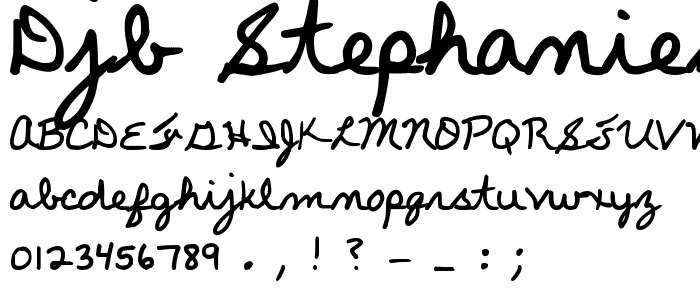 Djb Stephanie
ABCDEFGHIJKLMNOPQRSTUV
abcdefghijklmnopqrstuvwxyz
0123456789 . , ! ? - _ : ;